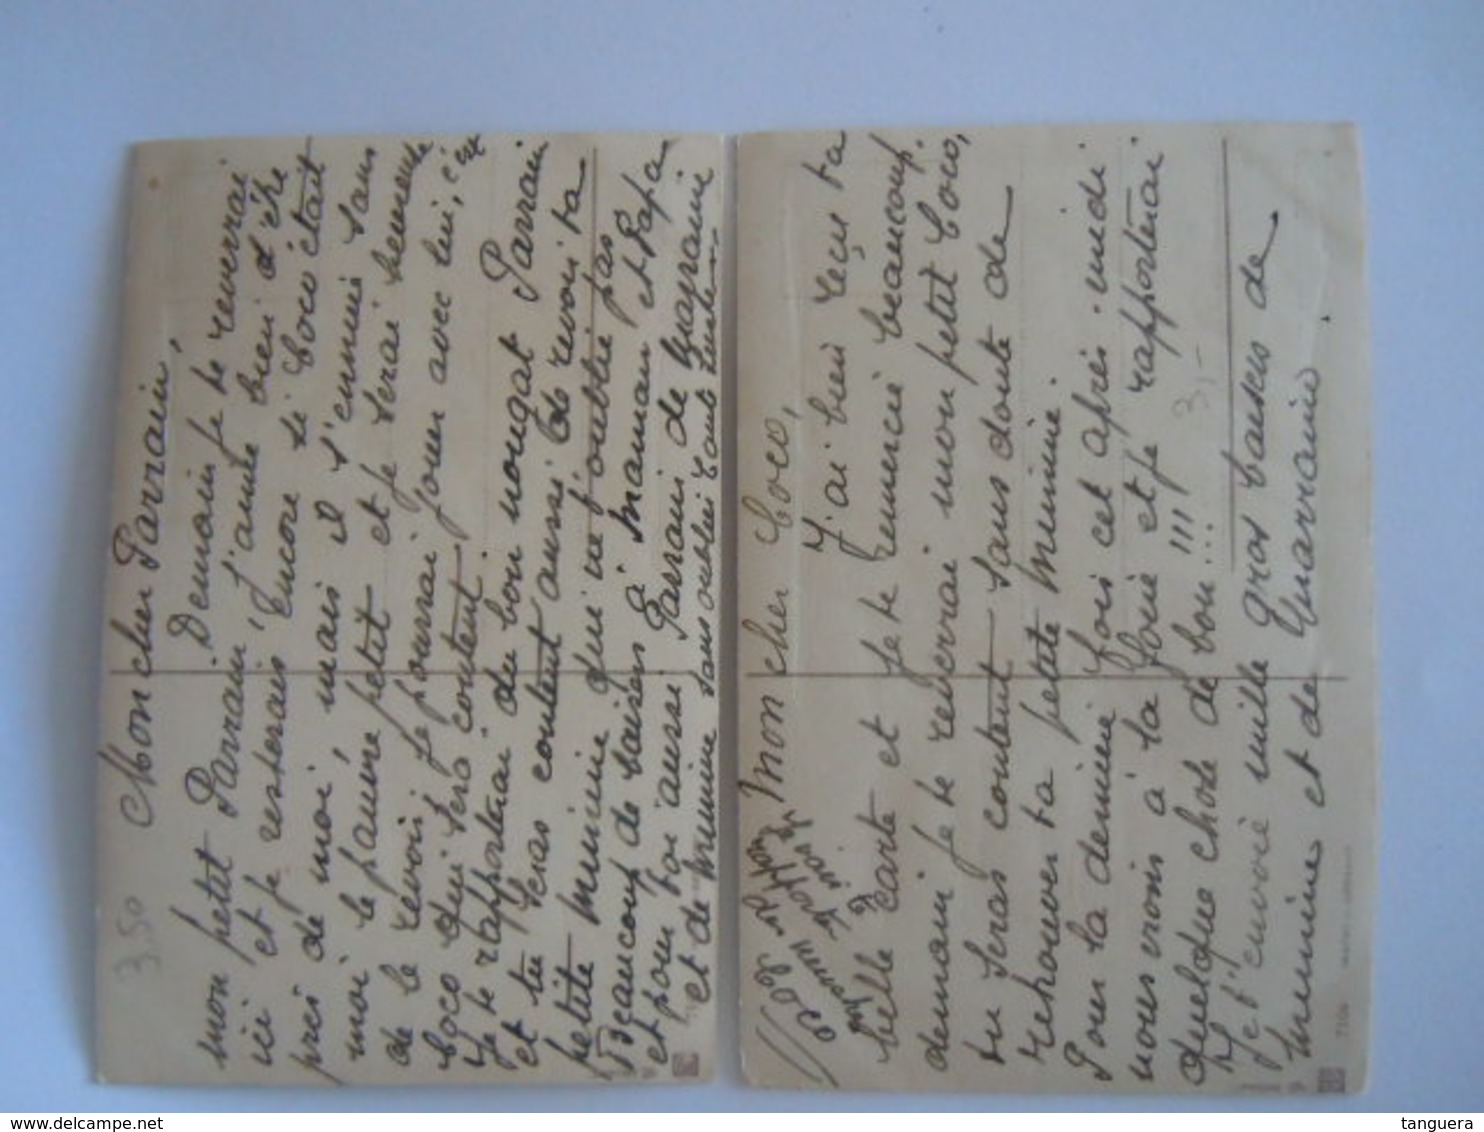 Mon cher Parrain,
Demain je te reverrai
mon petit Parrain j'aurai bien d'être
ici et je resterais encore si Coco était
près de moi, mais il s'ennuie sans
moi le pauvre petit et je serai heureuse
de le revoir je pourrai jouer avec lui, c'est
Coco qui sera content.
Je te rapporterai du bon nougat Parrain
et tu seras content aussi de revoir ta
petite Mimine qui ne t'oublie pas
Beaucoup de baisers à Maman et Papa
et pour toi aussi Parrain de Marraine
et de Mimine sans oublier
3,50
Mon cher Coco,
J'ai bien reçu ta
belle carte et je te remercie beaucoup.
demain je te reverrai mon petit Coco,
tu seras content sans doute de
retrouver ta petite Mimine
Pour la dernière fois cet après-midi
nous irons à la foire et je rapporterai
quelque chose de bon!!!...
Je t'envoie mille gros baisers de
Mimine et de Marraine
3,-
7106
www.delcampe.net
tanguera